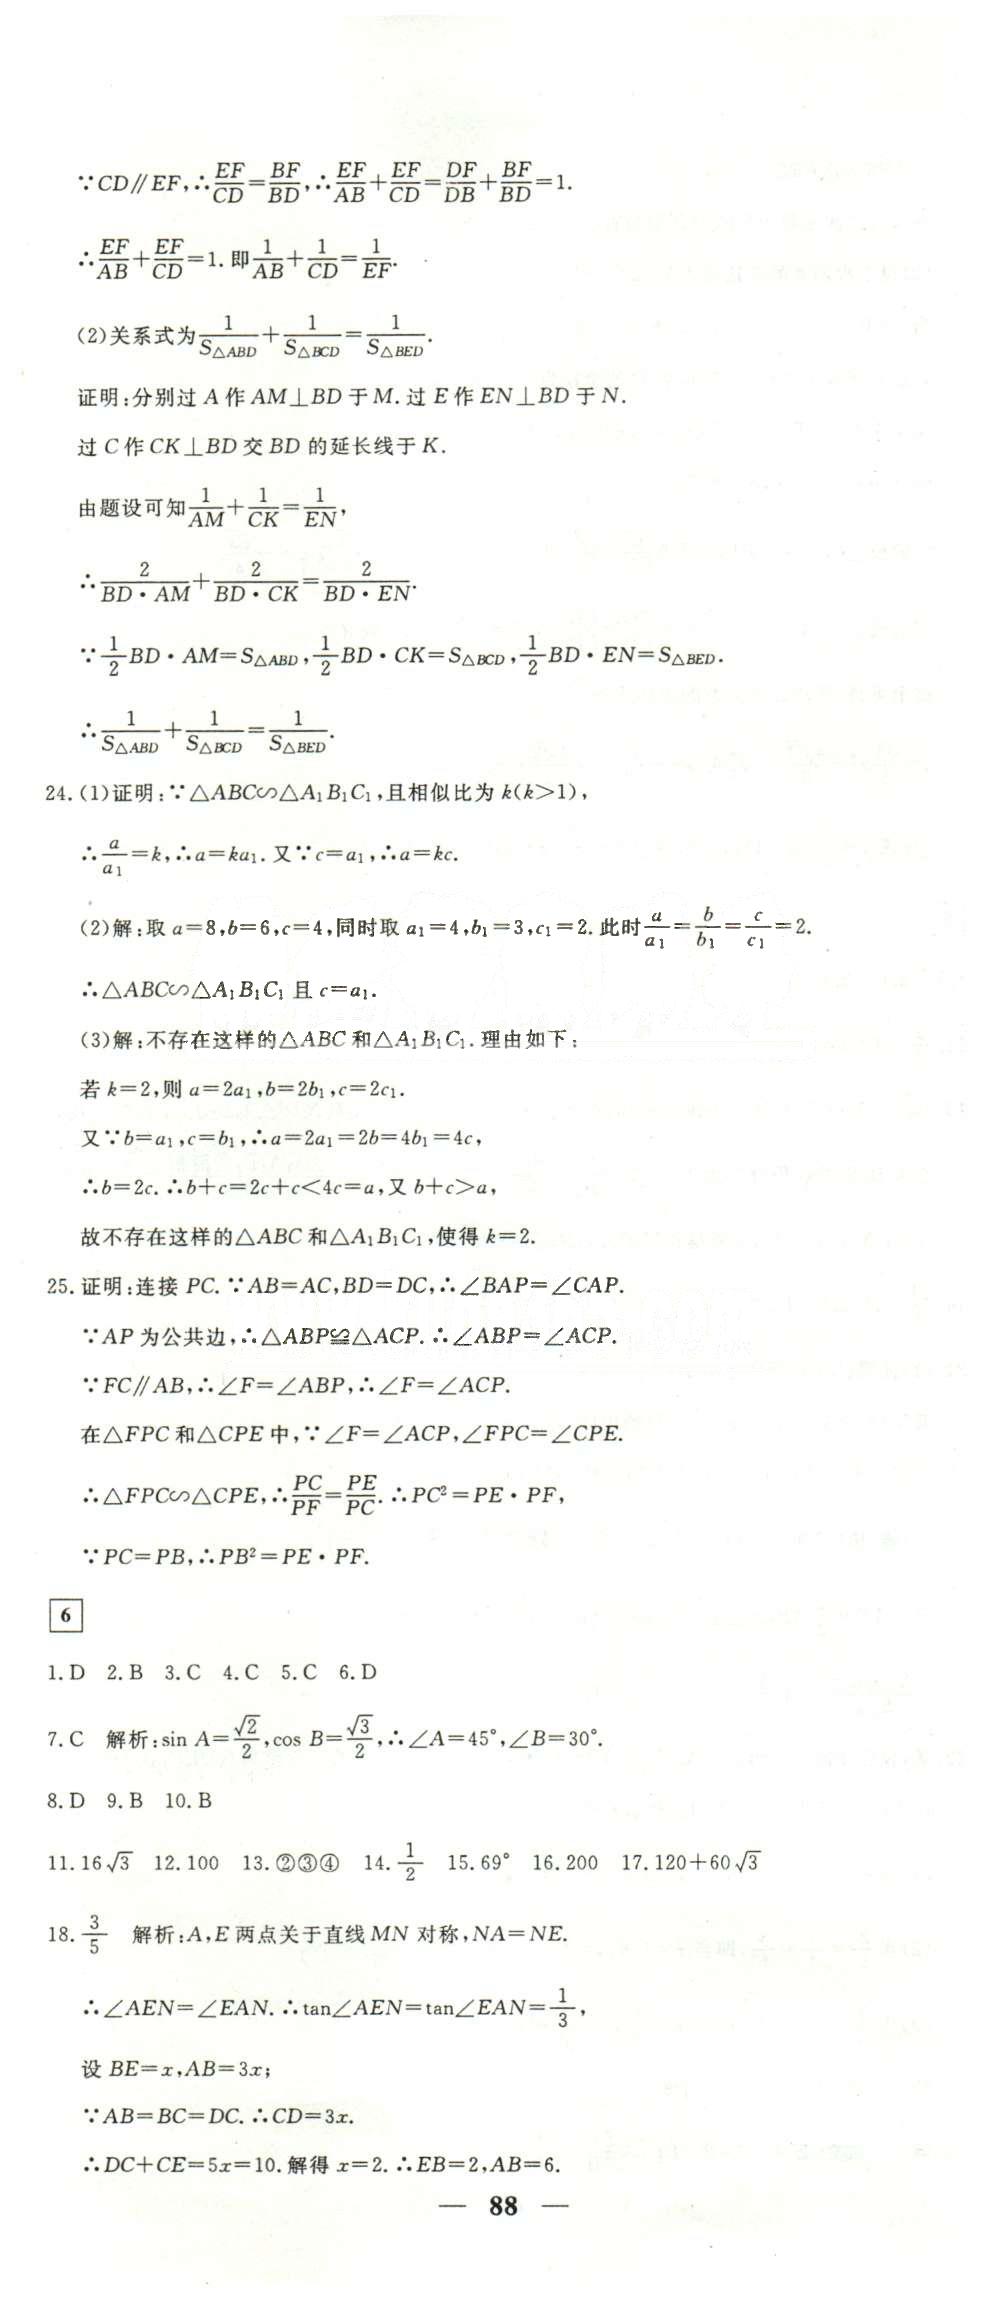 ∵CD∥EF,∴EF/CD=BF/BD,∴EF/AB+EF/CD=DF/DB+BF/BD=1.
∴EF/AB+EF/CD=1.即1/AB+1/CD=1/EF.
(2)关系式为1/S△ABD+1/S△BCD=1/S△BED.
证明:分别过A作AM⊥BD于M.过E作EN⊥BD于N.
过C作CK⊥BD交BD的延长线于K.
由题设可知1/AM+1/CK=1/EN,
∴2/(BD·AM)+2/(BD·CK)=2/(BD·EN).
∵1/2BD·AM=S△ABD,1/2BD·CK=S△BCD,1/2BD·EN=S△BED.
∴1/S△ABD+1/S△BCD=1/S△BED.
24.(1)证明:∵△ABC∽△A₁B₁C₁,且相似比为k(k>1),
∴a/a₁=k,∴a=ka₁.又∵c=a₁,∴a=kc.
(2)解:取a=8,b=6,c=4,同时取a₁=4,b₁=3,c₁=2.此时a/a₁=b/b₁=c/c₁=2.
∴△ABC∽△A₁B₁C₁且c=a₁.
(3)解:不存在这样的△ABC和△A₁B₁C₁.理由如下:
若k=2,则a=2a₁,b=2b₁,c=2c₁.
又∵b=a₁,c=b₁,∴a=2a₁=2b=4b₁=4c,
∴b=2c.∴b+c=2c+c<4c=a,又b+c>a,
故不存在这样的△ABC和△A₁B₁C₁,使得k=2.
25.证明:连接PC.∵AB=AC,BD=DC,∴∠BAP=∠CAP.
∵AP为公共边,∴△ABP≌△ACP.∴∠ABP=∠ACP.
∵FC∥AB,∴∠F=∠ABP,∴∠F=∠ACP.
在△FPC和△CPE中,∵∠F=∠ACP,∠FPC=∠CPE.
∴△FPC∽△CPE,∴PC/PF=PE/PC.∴PC²=PE·PF,
∵PC=PB,∴PB²=PE·PF.
6
1.D 2.B 3.C 4.C 5.C 6.D
7.C 解析:sin A=√2/2,cos B=√3/2,∴∠A=45°,∠B=30°.
8.D 9.B 10.B
11.16√3 12.100 13.②③④ 14.1/2 15.69° 16.200 17.120+60√3
18.3/5 解析:A,E两点关于直线MN对称,NA=NE.
∴∠AEN=∠EAN.∴tan∠AEN=tan∠EAN=1/3,
设BE=x,AB=3x;
∵AB=BC=DC.∴CD=3x.
∴DC+CE=5x=10.解得x=2.∴EB=2,AB=6.
— 88 —